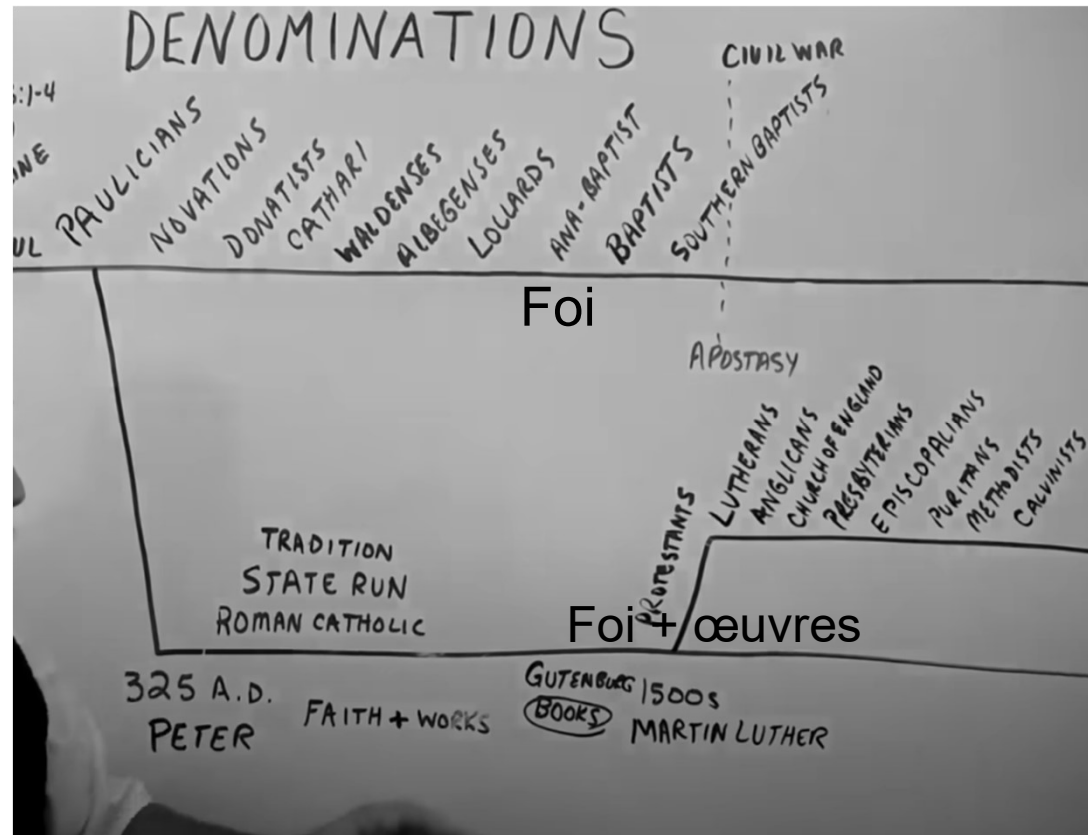 DENOMINATIONS
CIVIL WAR
:1-4
PAULICIANS
NOVATIONS
DONATISTS
CATHARI
WALDENSES
ALBEGENSES
LOLLARDS
ANA-BAPTIST
BAPTISTS
SOUTHERN BAPTISTS
UL
Foi
APOSTASY
PROTESTANTS
LUTHERANS
ANGLICANS
CHURCH OF ENGLAND
PRESBYTERIANS
EPISCOPALIANS
PURITANS
METHODISTS
CALVINISTS
TRADITION
STATE RUN
ROMAN CATHOLIC
Foi + œuvres
325 A.D.
PETER
FAITH + WORKS
GUTENBURG 1500s
BOOKS
MARTIN LUTHER